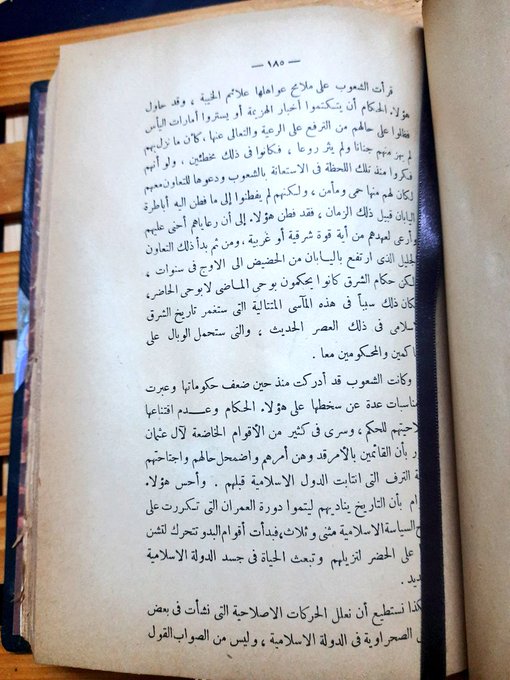 — ١٨٥ —
قرأت الشعوب على ملامح عواهلها علائم الخيبة ، وقد حاول
هؤلاء الحكام أن يتكتموا أخبار الهزيمة أو يستروا أمارات اليأس
فظلوا على حالهم من الترفع على الرعية والتعالى عنها ، كأن ما نزل بهم
لم يهز منهم جنانا ولم يثر روعا ، فكانوا فى ذلك مخطئين ، ولو أنهم
فكروا منذ تلك اللحظة فى الاستعانة بالشعوب ودعوها للتعاون معهم
لكان لهم منها حمى ومأمن ، ولكنهم لم يفطنوا إلى ما فطن اليه أباطرة
اليابان قبيل ذلك الزمان ، فقد فطن هؤلاء إلى أن رعاياهم أحنى عليهم
وأرعى لعهدهم من أية قوة شرقية أو غربية ، ومن ثم بدأ ذلك التعاون
الجليل الذى ارتفع باليابان من الحضيض الى الاوج فى سنوات ،
لكن حكام الشرق كانوا يحكمون بوحى الماضى لا بوحى الحاضر ،
كان ذلك سببا فى هذه المآسى المتتالية التى ستغمر تاريخ الشرق
سلامى فى ذلك العصر الحديث ، والتى ستحمل الوبال على
اكمين والمحكومين معا .
وكانت الشعوب قد أدركت منذ حين ضعف حكوماتها وعبرت
ناسبات عدة عن سخطها على هؤلاء الحكام وعدم اقتناعها
لاحيتهم للحكم ، وسرى فى كثير من الأقوام الخاضعة لآل عثمان
ر بأن القائمين بالأمر قد وهن أمرهم واضمحل حالهم واجتاحتهم
ة الترف التى انتابت الدول الاسلامية قبلهم . وأحس هؤلاء
ام بأن التاريخ يناديهم ليتموا دورة العمران التى تكررت على
ح السياسة الاسلامية مثنى وثلاث ، فبدأت أقوام البدو تتحرك لتشن
على الحضر لتزيلهم وتبعث الحياة فى جسد الدولة الاسلامية
ديد .
كذا نستطيع أن نعلل الحركات الاصلاحية التى نشأت فى بعض
الصحراوية فى الدولة الاسلامية ، وليس من الصواب القول